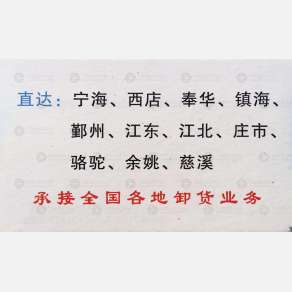 直达：宁海、西店、奉华、镇海、
鄞州、江东、江北、庄市、
骆驼、余姚、慈溪
承接全国各地卸货业务